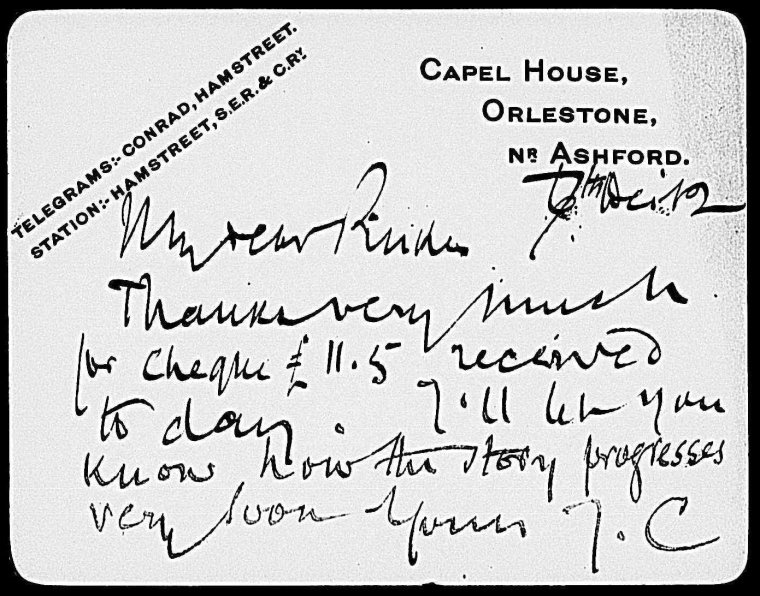 TELEGRAMS:- CONRAD, HAMSTREET.
STATION:- HAMSTREET, S.E.R. & C.RY.
CAPEL HOUSE,
ORLESTONE,
NR ASHFORD.
My dear Pinker
Thanks very much
for cheque £11.5 received
to day. I'll let you
know how the story progresses
very soon Yours J. C